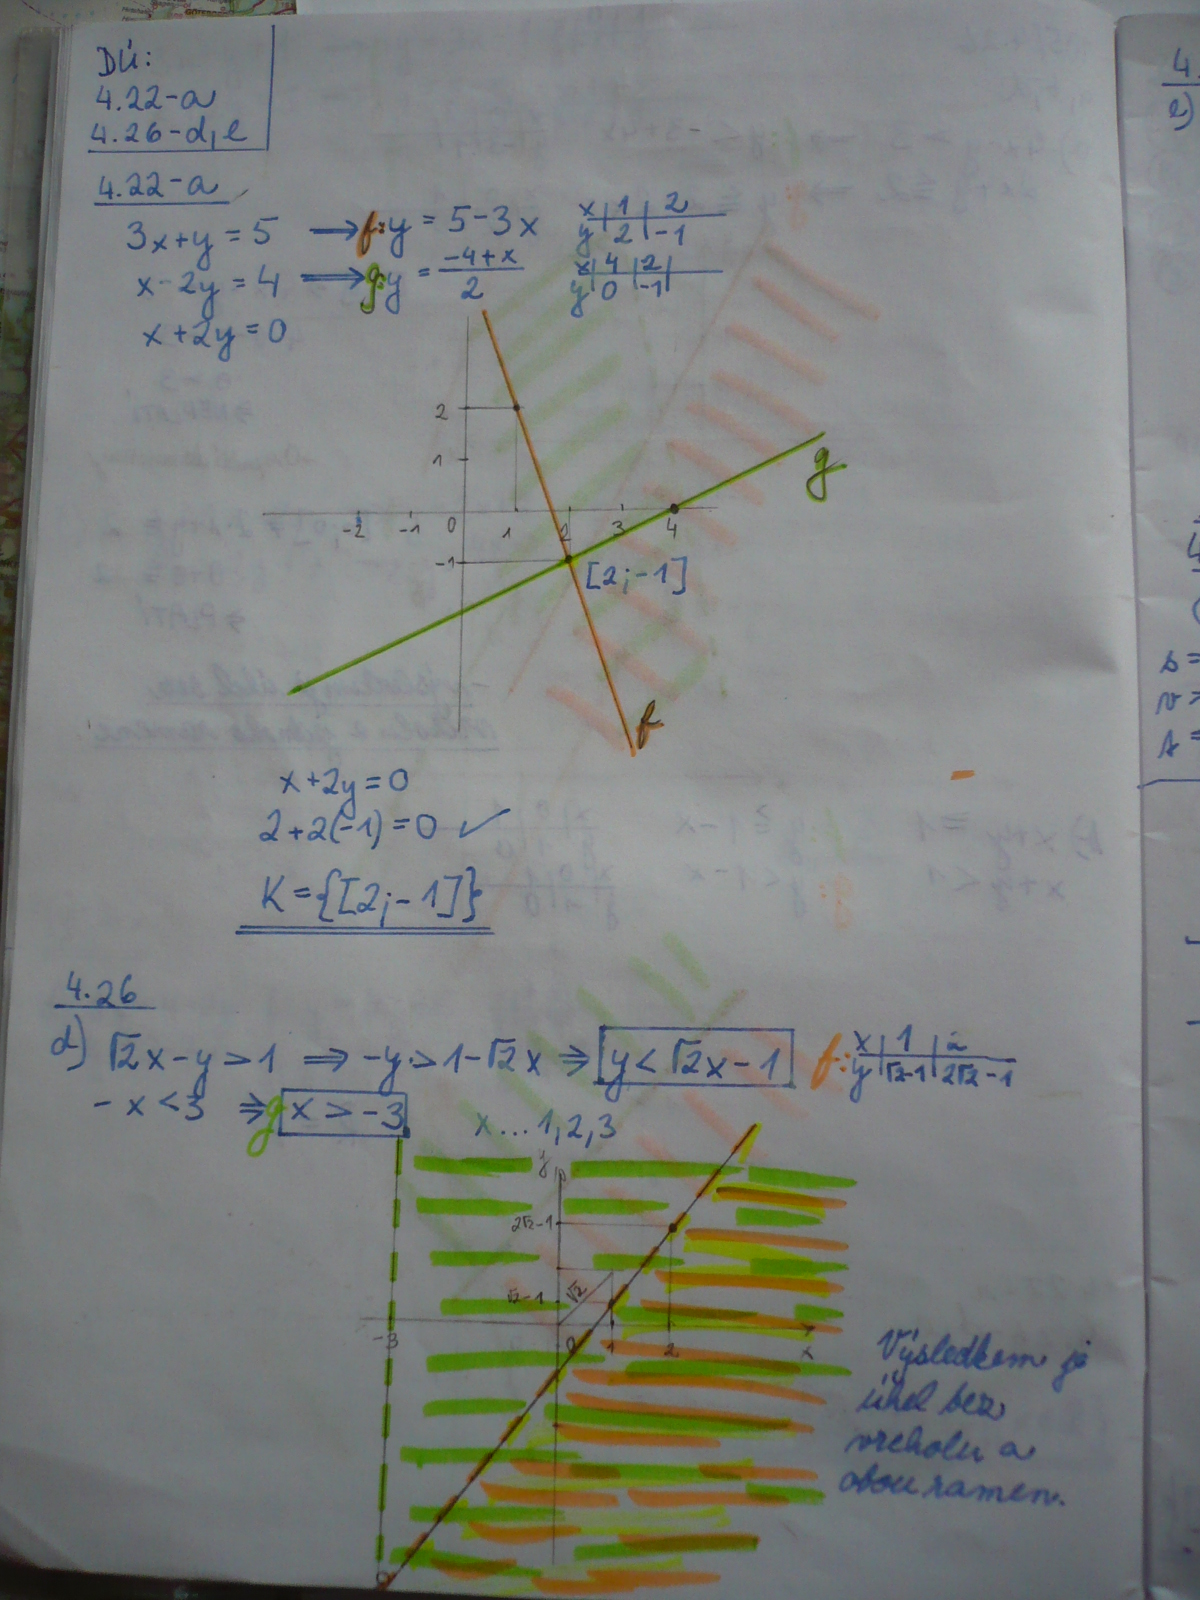 DÚ:
4.22-a
4.26-d, e
4.22-a
3x+y = 5 → f: y = 5-3x
x | 1 | 2
y | 2 | -1
x-2y = 4 ⟹ g: y = (-4+x)/2
x | 4 | 2 |
y | 0 | -1 |
x+2y = 0
2
1
-2 -1 0 1 2 3 4
-1
g
[2; -1]
f
x+2y = 0
2+2(-1) = 0 ✓
K = {[2; -1]}
4.26
d) √2x-y > 1 ⇒ -y > 1-√2x ⇒ y < √2x-1
f: x | 1 | 2
y | √2-1 | 2√2-1
-x < 3 ⇒ g x > -3
x...1,2,3
y
2√2-1
√2-1
√2
-3 0 1 2 x
Výsledkem je
úhel bez
vrcholu a
obou ramen.
4.